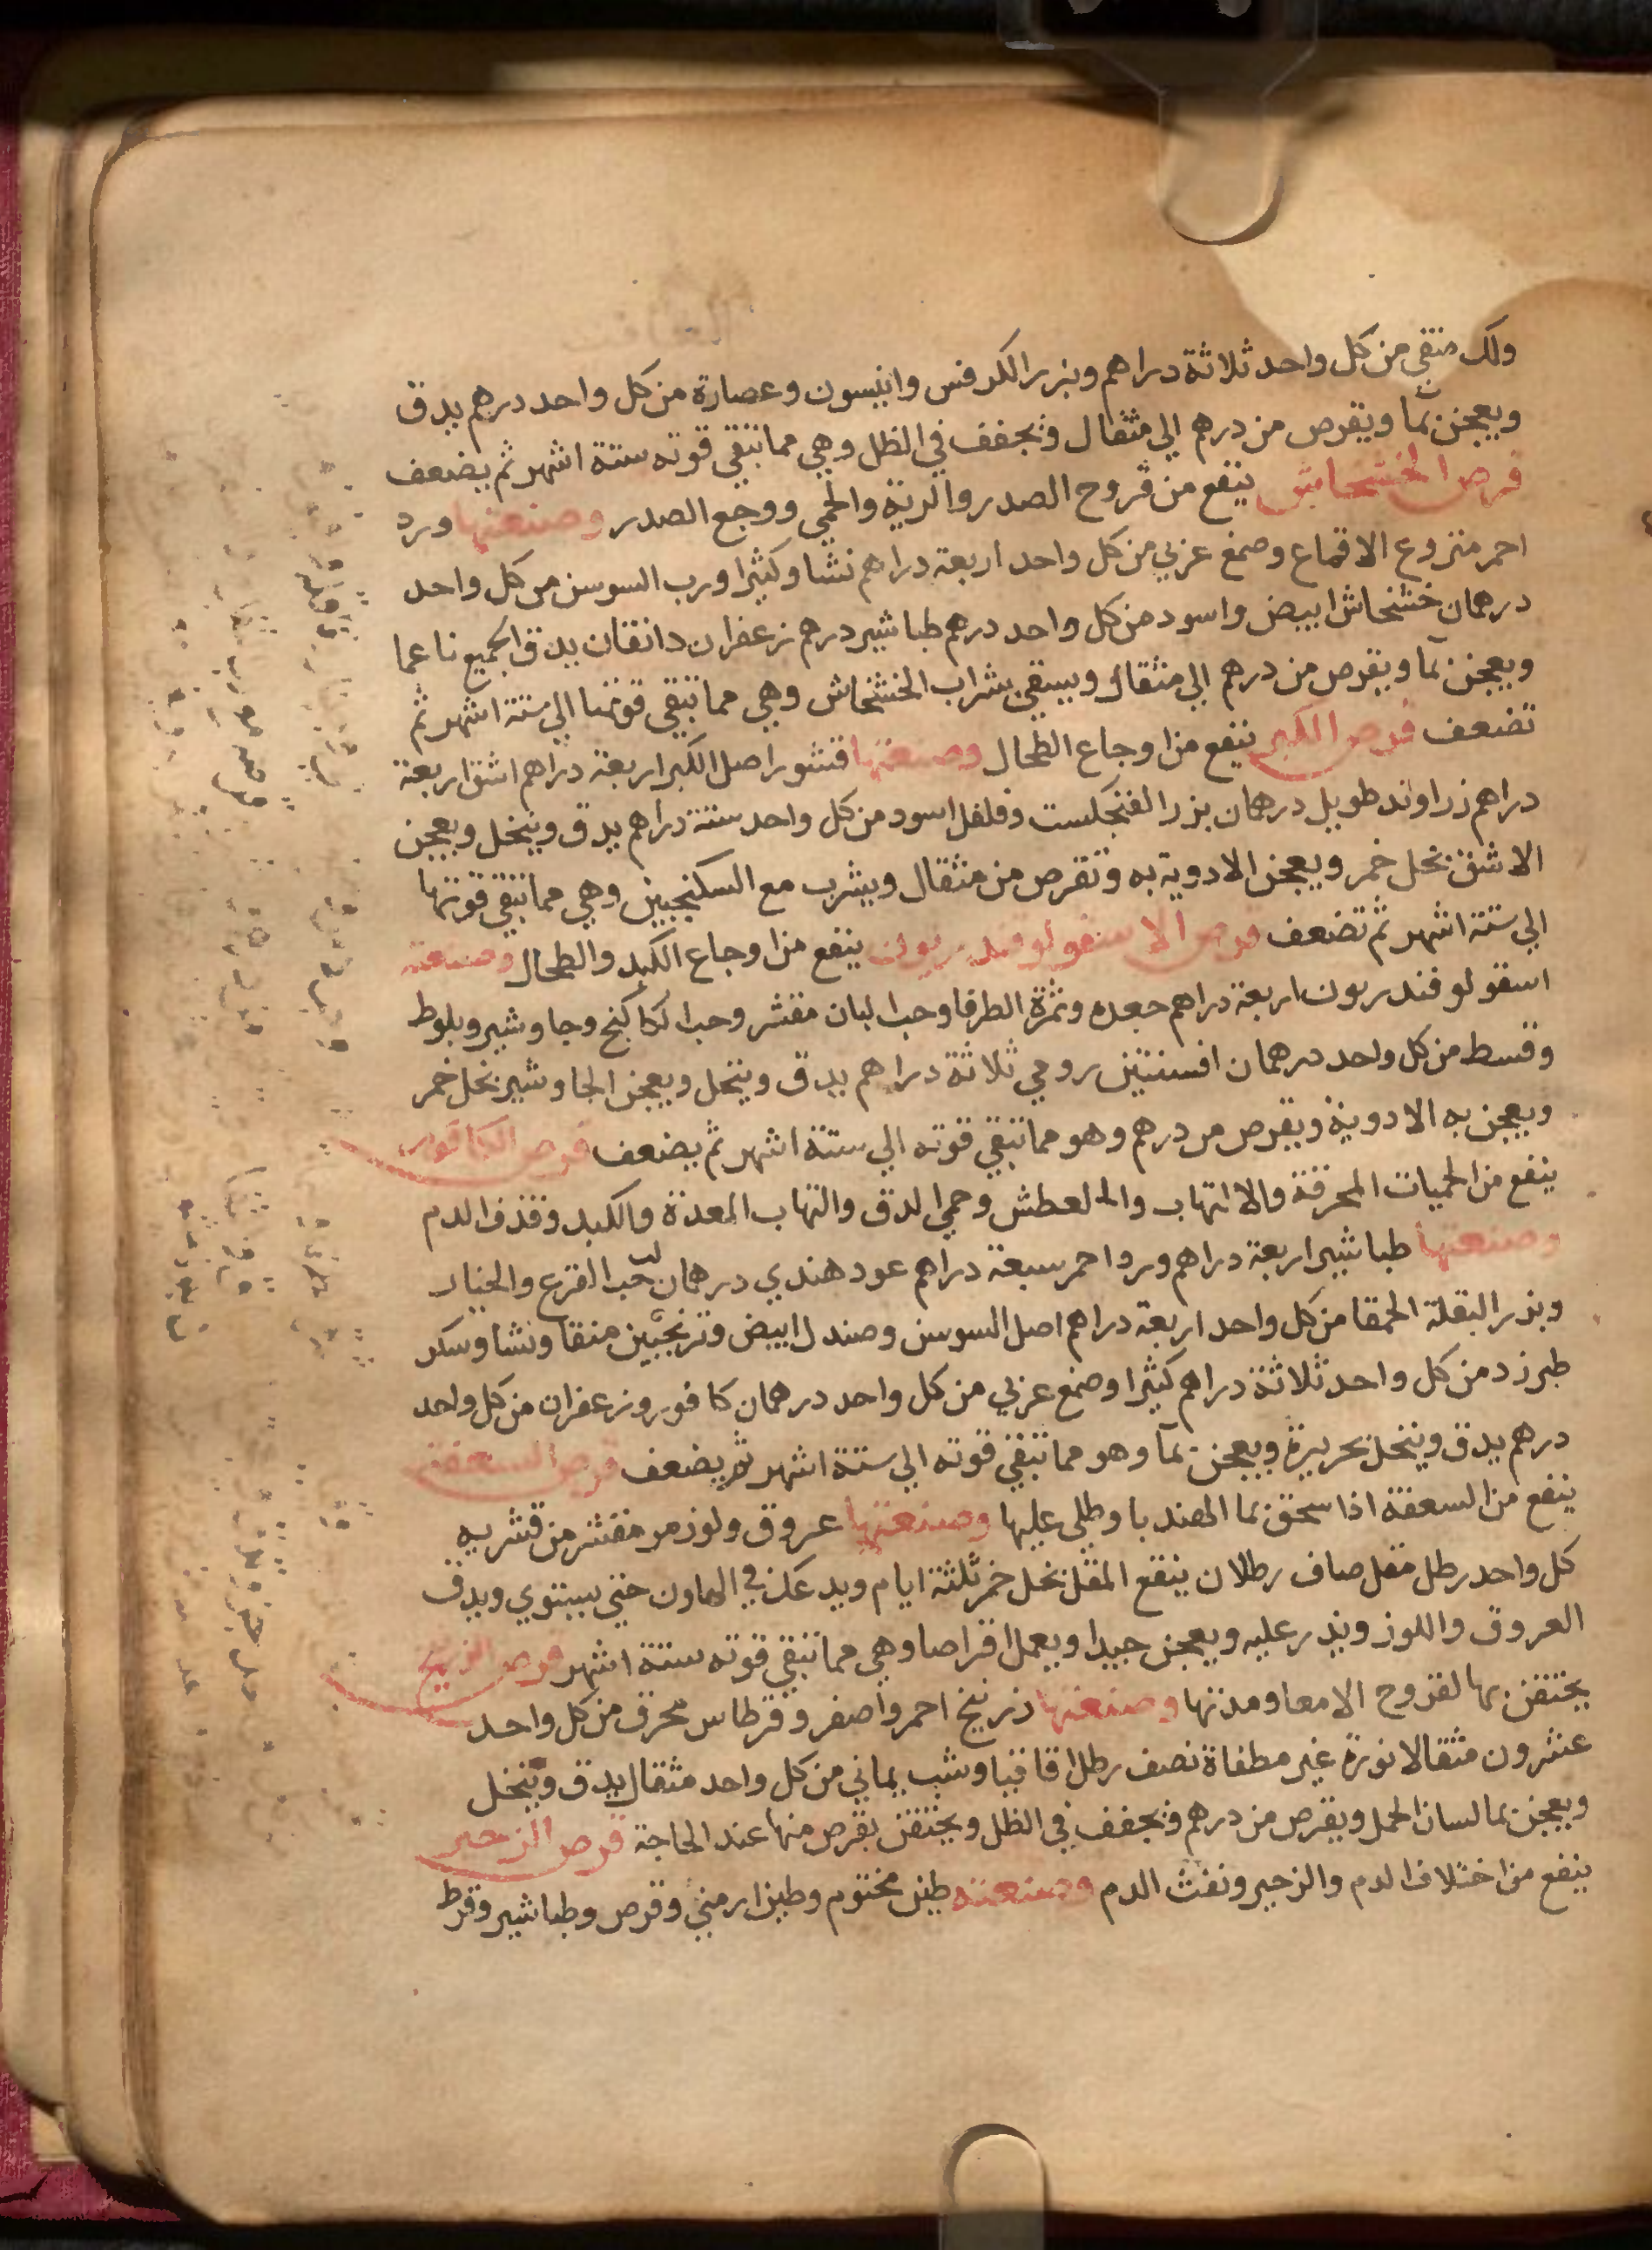 ولك منقي من كل واحد ثلاثة دراهم وبزر الكرفس وانيسون وعصارة من كل واحد درهم يدق
ويعجن بما ويقرص من درهم الي مثقال وتجفف في الظل وهي مما تبقي قوته ستة اشهر ثم يضعف
قرص الخشخاش ينفع من قروح الصدر والرية والحمي ووجع الصدر وصنعتها ورد
احمر منزوع الاقماع وصمغ عربي من كل واحد اربعة دراهم نشا وكثيرا ورب السوسن من كل واحد
درهمان خشخاش ابيض واسود من كل واحد درهم طباشير درهم زعفران دانقان يدق الجميع ناعما
ويعجن بما ويقرص من درهم الي مثقال ويسقي بشراب الخشخاش وهي مما تبقي قوتها الي ستة اشهر ثم
تضعف قرص الكبر ينفع من اوجاع الطحال وصنعتها قشور اصل الكبر اربعة دراهم اشق اربعة
دراهم زراوند طويل درهمان بزر الفنجكست وفلفل اسود من كل واحد ستة دراهم يدق وينخل ويعجن
الاشق بخل خمر ويعجن الادوية به وتقرص من مثقال ويشرب مع السكنجبين وهي مما تبقي قوتها
الي ستة اشهر ثم تضعف قرص الاسقولوفندريون ينفع من اوجاع الكبد والطحال وصنعته
اسقولوفندريون اربعة دراهم جعده وثمرة الطرفا وحب البان مقشر وحب الكاكنج وجاوشير وبلوط
وقسط من كل واحد درهمان افسنتين رومي ثلاثة دراهم يدق وينخل ويعجن الجاوشير بخل خمر
ويعجن به الادوية ويقرص من درهم وهو مما تبقي قوته الي ستة اشهر ثم يضعف قرص الكافور
ينفع من الحميات المحرقة والالتهاب والعطش وحمي الدق والتهاب المعدة والكبد وقذف الدم
وصنعتها طباشير اربعة دراهم ورد احمر سبعة دراهم عود هندي درهمان لب حب القرع والخيار
وبزر البقلة الحمقا من كل واحد اربعة دراهم اصل السوسن وصندل ابيض وترنجبين منقا ونشا وسكر
طبرزد من كل واحد ثلاثة دراهم كثيرا وصمغ عربي من كل واحد درهمان كافور وزعفران من كل واحد
درهم يدق وينخل بحريرة ويعجن بما وهو مما تبقي قوته الي ستة اشهر ثم يضعف قرص السعفة
ينفع من السعفة اذا سحق بما الهندبا وطلي عليها وصنعتها عروق ولوز مر مقشر من قشريه
كل واحد رطل مقل صاف رطلان ينقع المقل بخل خمر ثلثة ايام ويدعك في الهاون حتي يستوي ويدق
العروق واللوز ويذر عليه ويعجن جيدا ويعمل اقراصا وهي مما تبقي قوته ستة اشهر قرص الزرنيخ
يحتقن بها لقروح الامعا ومدتها وصنعتها زرنيخ احمر واصفر وقرطاس محرق من كل واحد
عشرون مثقالا نورة غير مطفاة نصف رطل اقاقيا وشب يماني من كل واحد مثقال يدق وينخل
ويعجن بما لسان الحمل ويقرص من درهم وتجفف في الظل ويحتقن بقرص منها عند الحاجة قرص الزحير
ينفع من اختلاف الدم والزحير ونفث الدم وصنعته طين مختوم وطين ارمني وقرص وطباشير وقرط